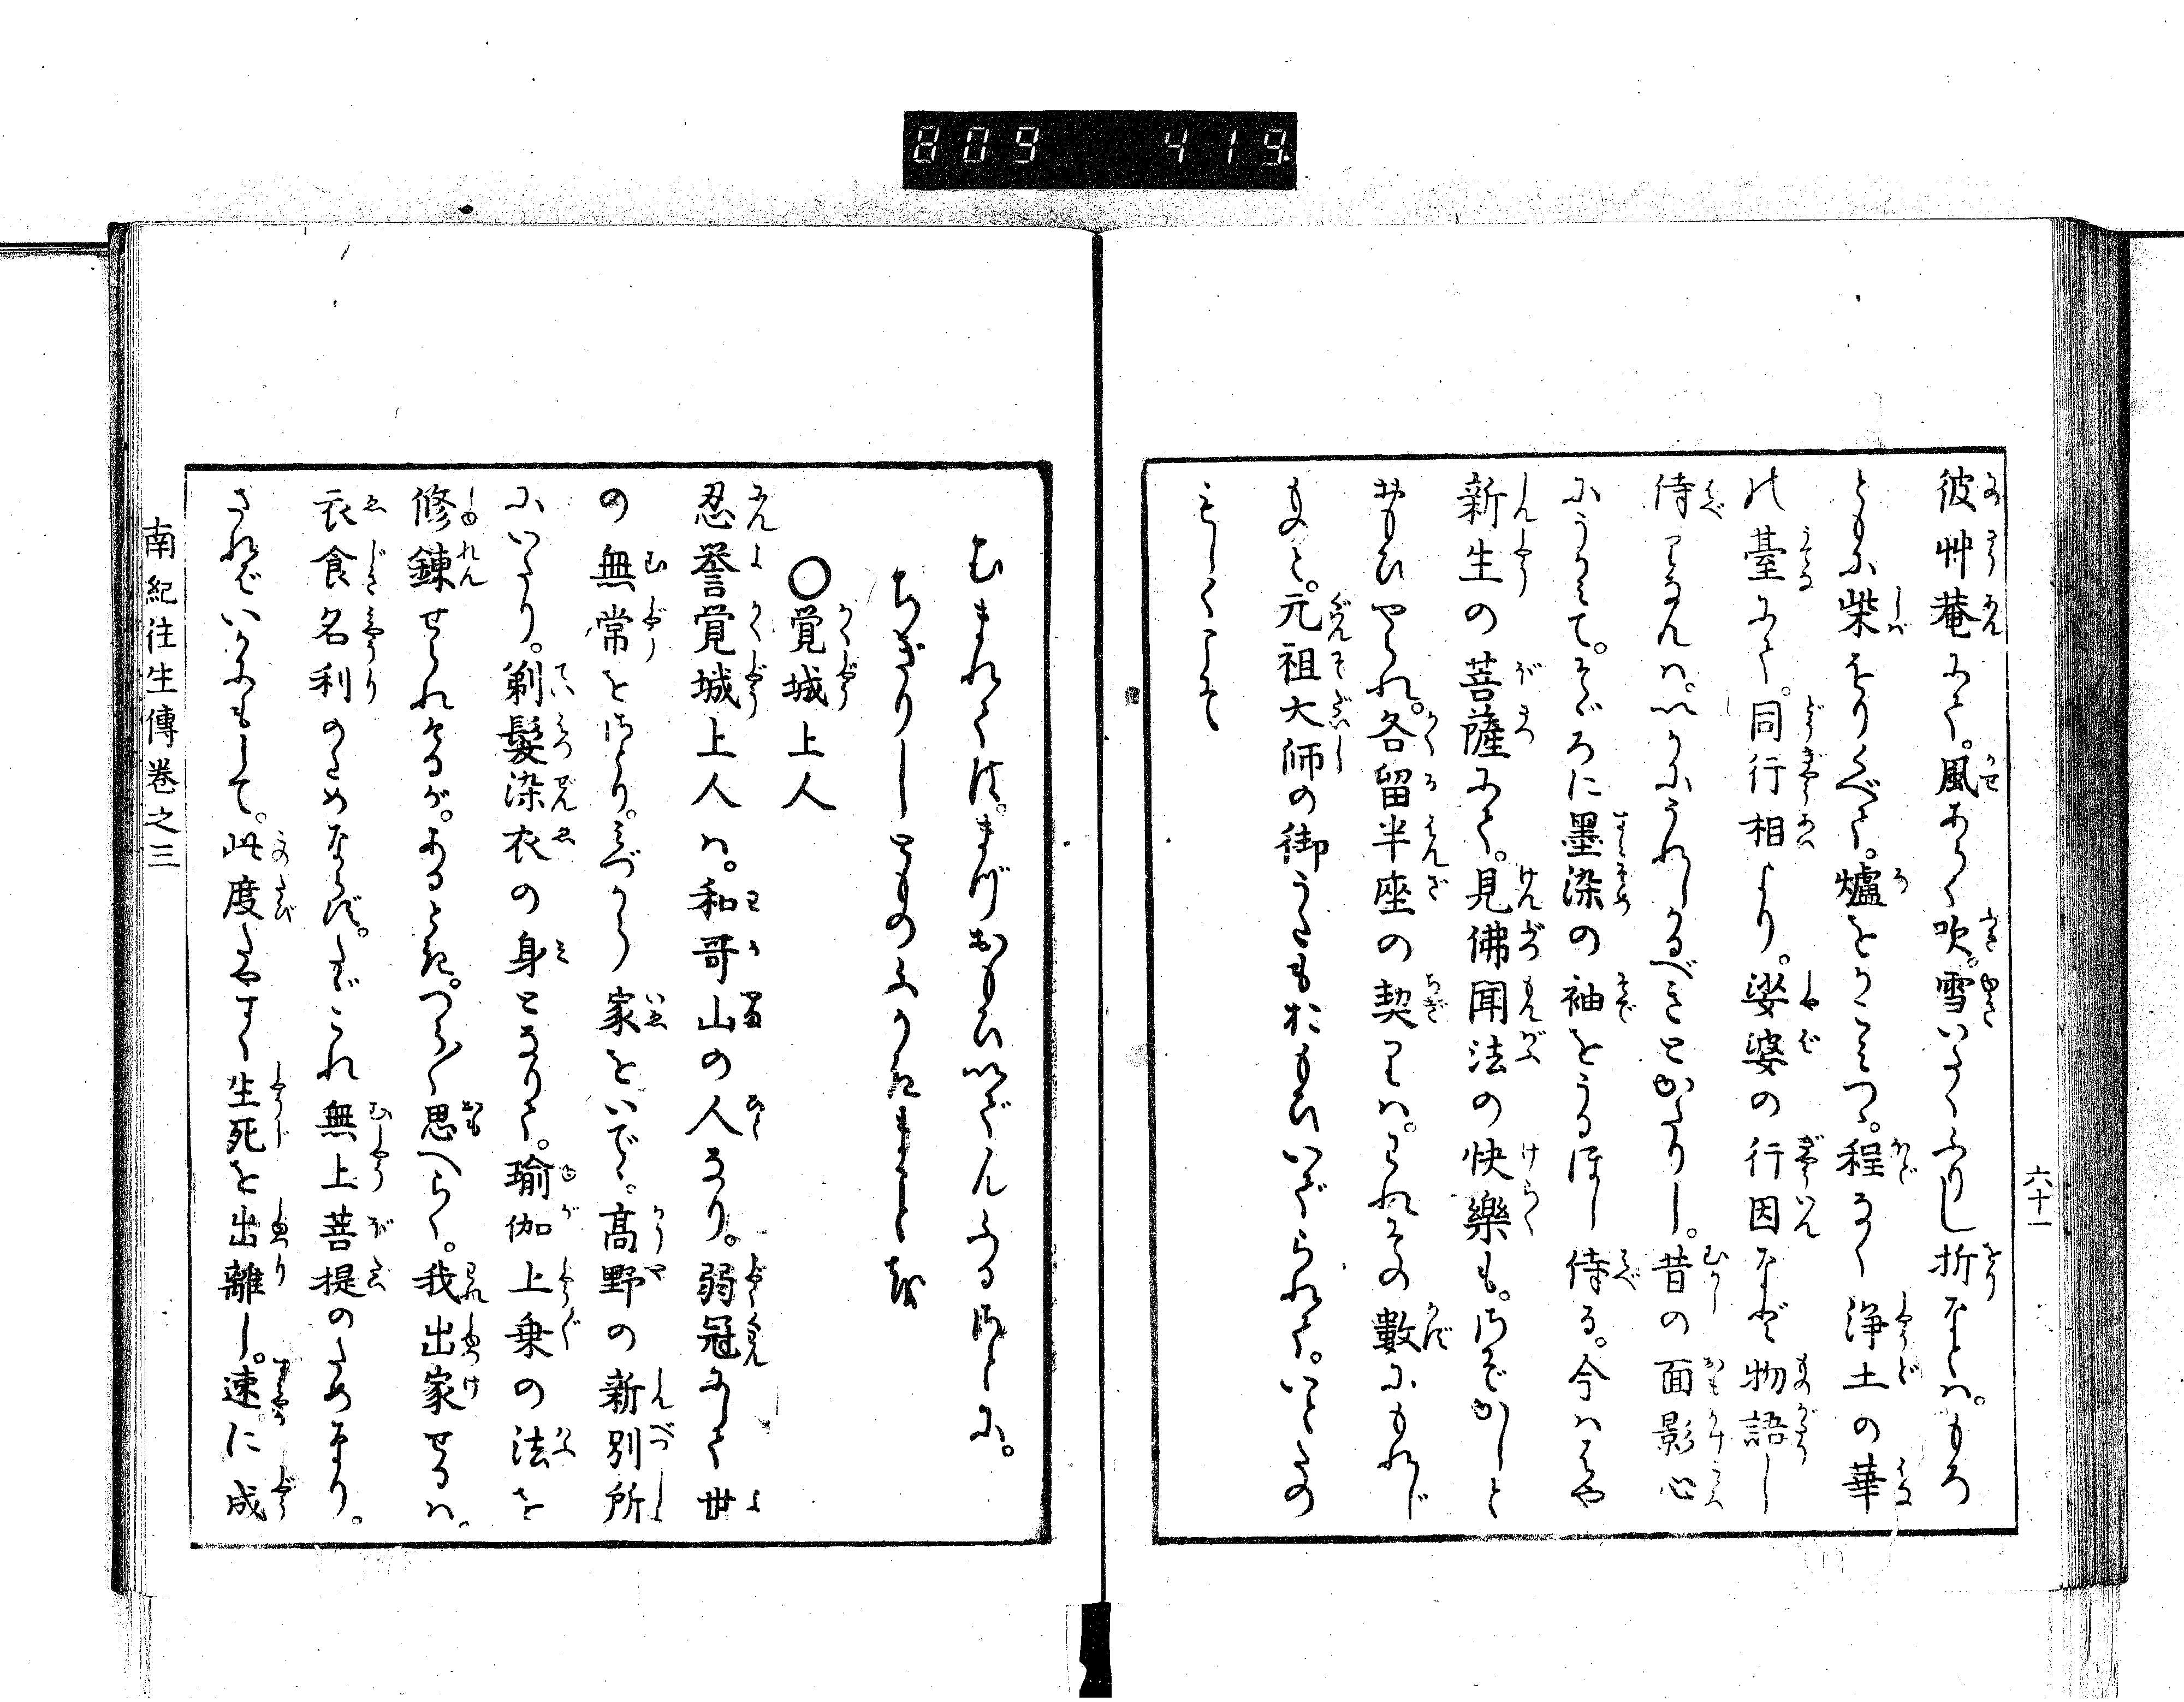 809 419
六十一
彼艸菴にて。風あらく吹。雪いたくふりし折なとハ。もろ
ともに柴折りくべて。爐をかこみつゝ。程なく浄土の華
の臺にて。同行相より。娑婆の行因など物語し
侍りなんハ。いかにうれしかるべきとかたりし。昔の面影心
にうかみて。そゞろに墨染の袖をうるほし侍る。今ハはや
新生の菩薩にて。見佛聞法の快樂も。さぞかしと
おもひやられ。各留半座の契りハ。われその數にもれじ
ものと。元祖大師の御うたもおもひいでられて。いとたの
もしくこそ
むまれては。まづおもひいでんふる（さとに。
ちぎりしとものふかきまことを
○覚城上人
忍誉覚城上人ハ。和哥山の人なり。弱冠にして世
の無常をさとり。みづから家をいで。高野の新別所
にいたり。剃髮染衣の身となりて。瑜伽上乗の法を
修錬せられけるが。あるとき。つら〳〵思へらく。我出家せるハ。
衣食名利のためならず。たゞこれ無上菩提のためなり。
さればいかにもして。此度たやすく生死を出離し。速に成
南紀往生傳巻之三